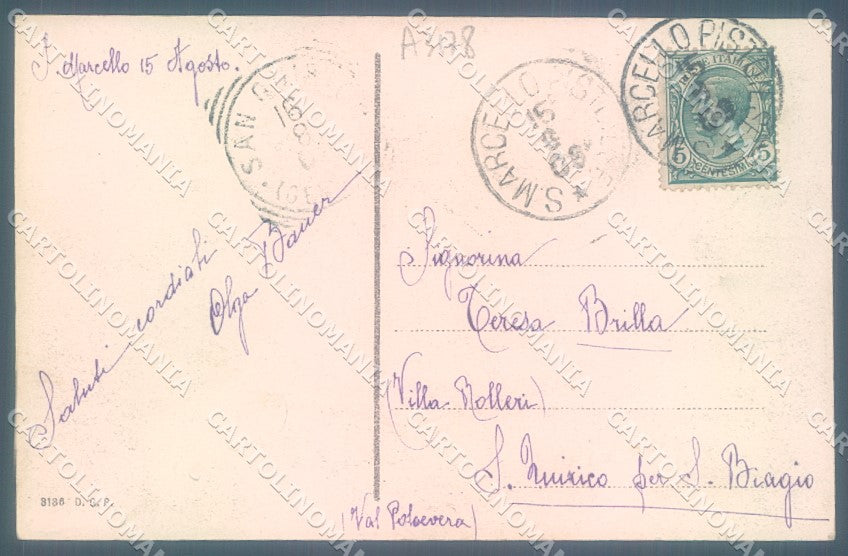 S. Marcello 15 Agosto.
A 478
SAN
(GE
S. MARCELLO PISTOIESE
MARCELLO PIST
POSTE ITALIANE
5 CENTESIMI 5
Saluti cordiali
Olga Bauer
Signorina
Teresa Brilla
(Villa Rolleri)
S. Quirico per S. Biagio
(Val Polcevera)
3136 D. G. P.
CARTOLINOMANIA